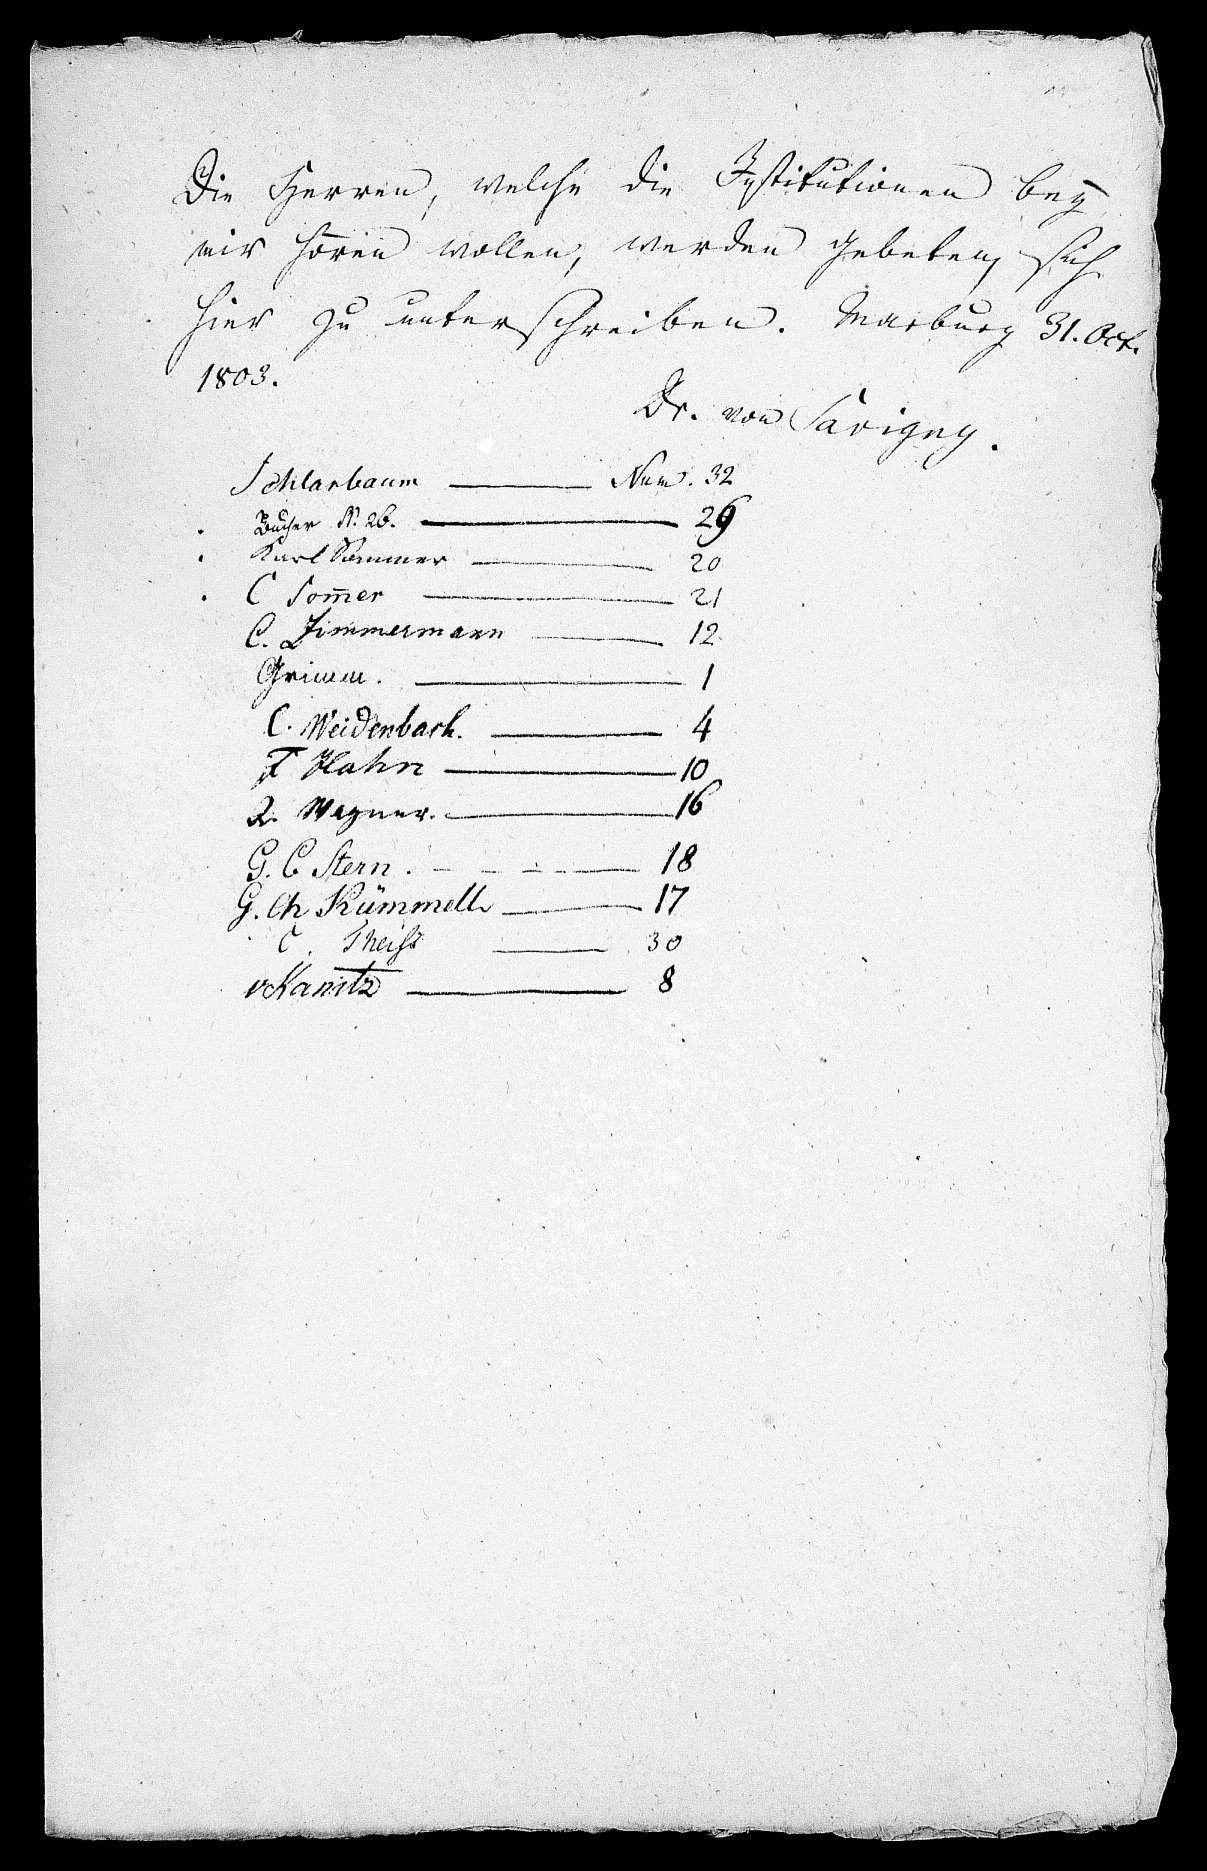 Die Herren, welche die Institutionen bey
mir hören wollen, werden gebeten, sich
hier zu unterschreiben. Marburg 31. Oct.
1803.
Dr. von Savigny.
Schlarbaum ——— Num. 32
Bucher N. 26. ——— 29
Karl Sommer ——— 20
C Som̅er ——— 21
C. Zimmermann ——— 12
Grimm. ——— 1
C. Weidenbach. ——— 4
F Hahn ——— 10
R. Wagner. ——— 16
G. C Stern. ——— 18
G. Ch Kümmell ——— 17
C. Theiß ——— 30
v Kanitz ——— 8